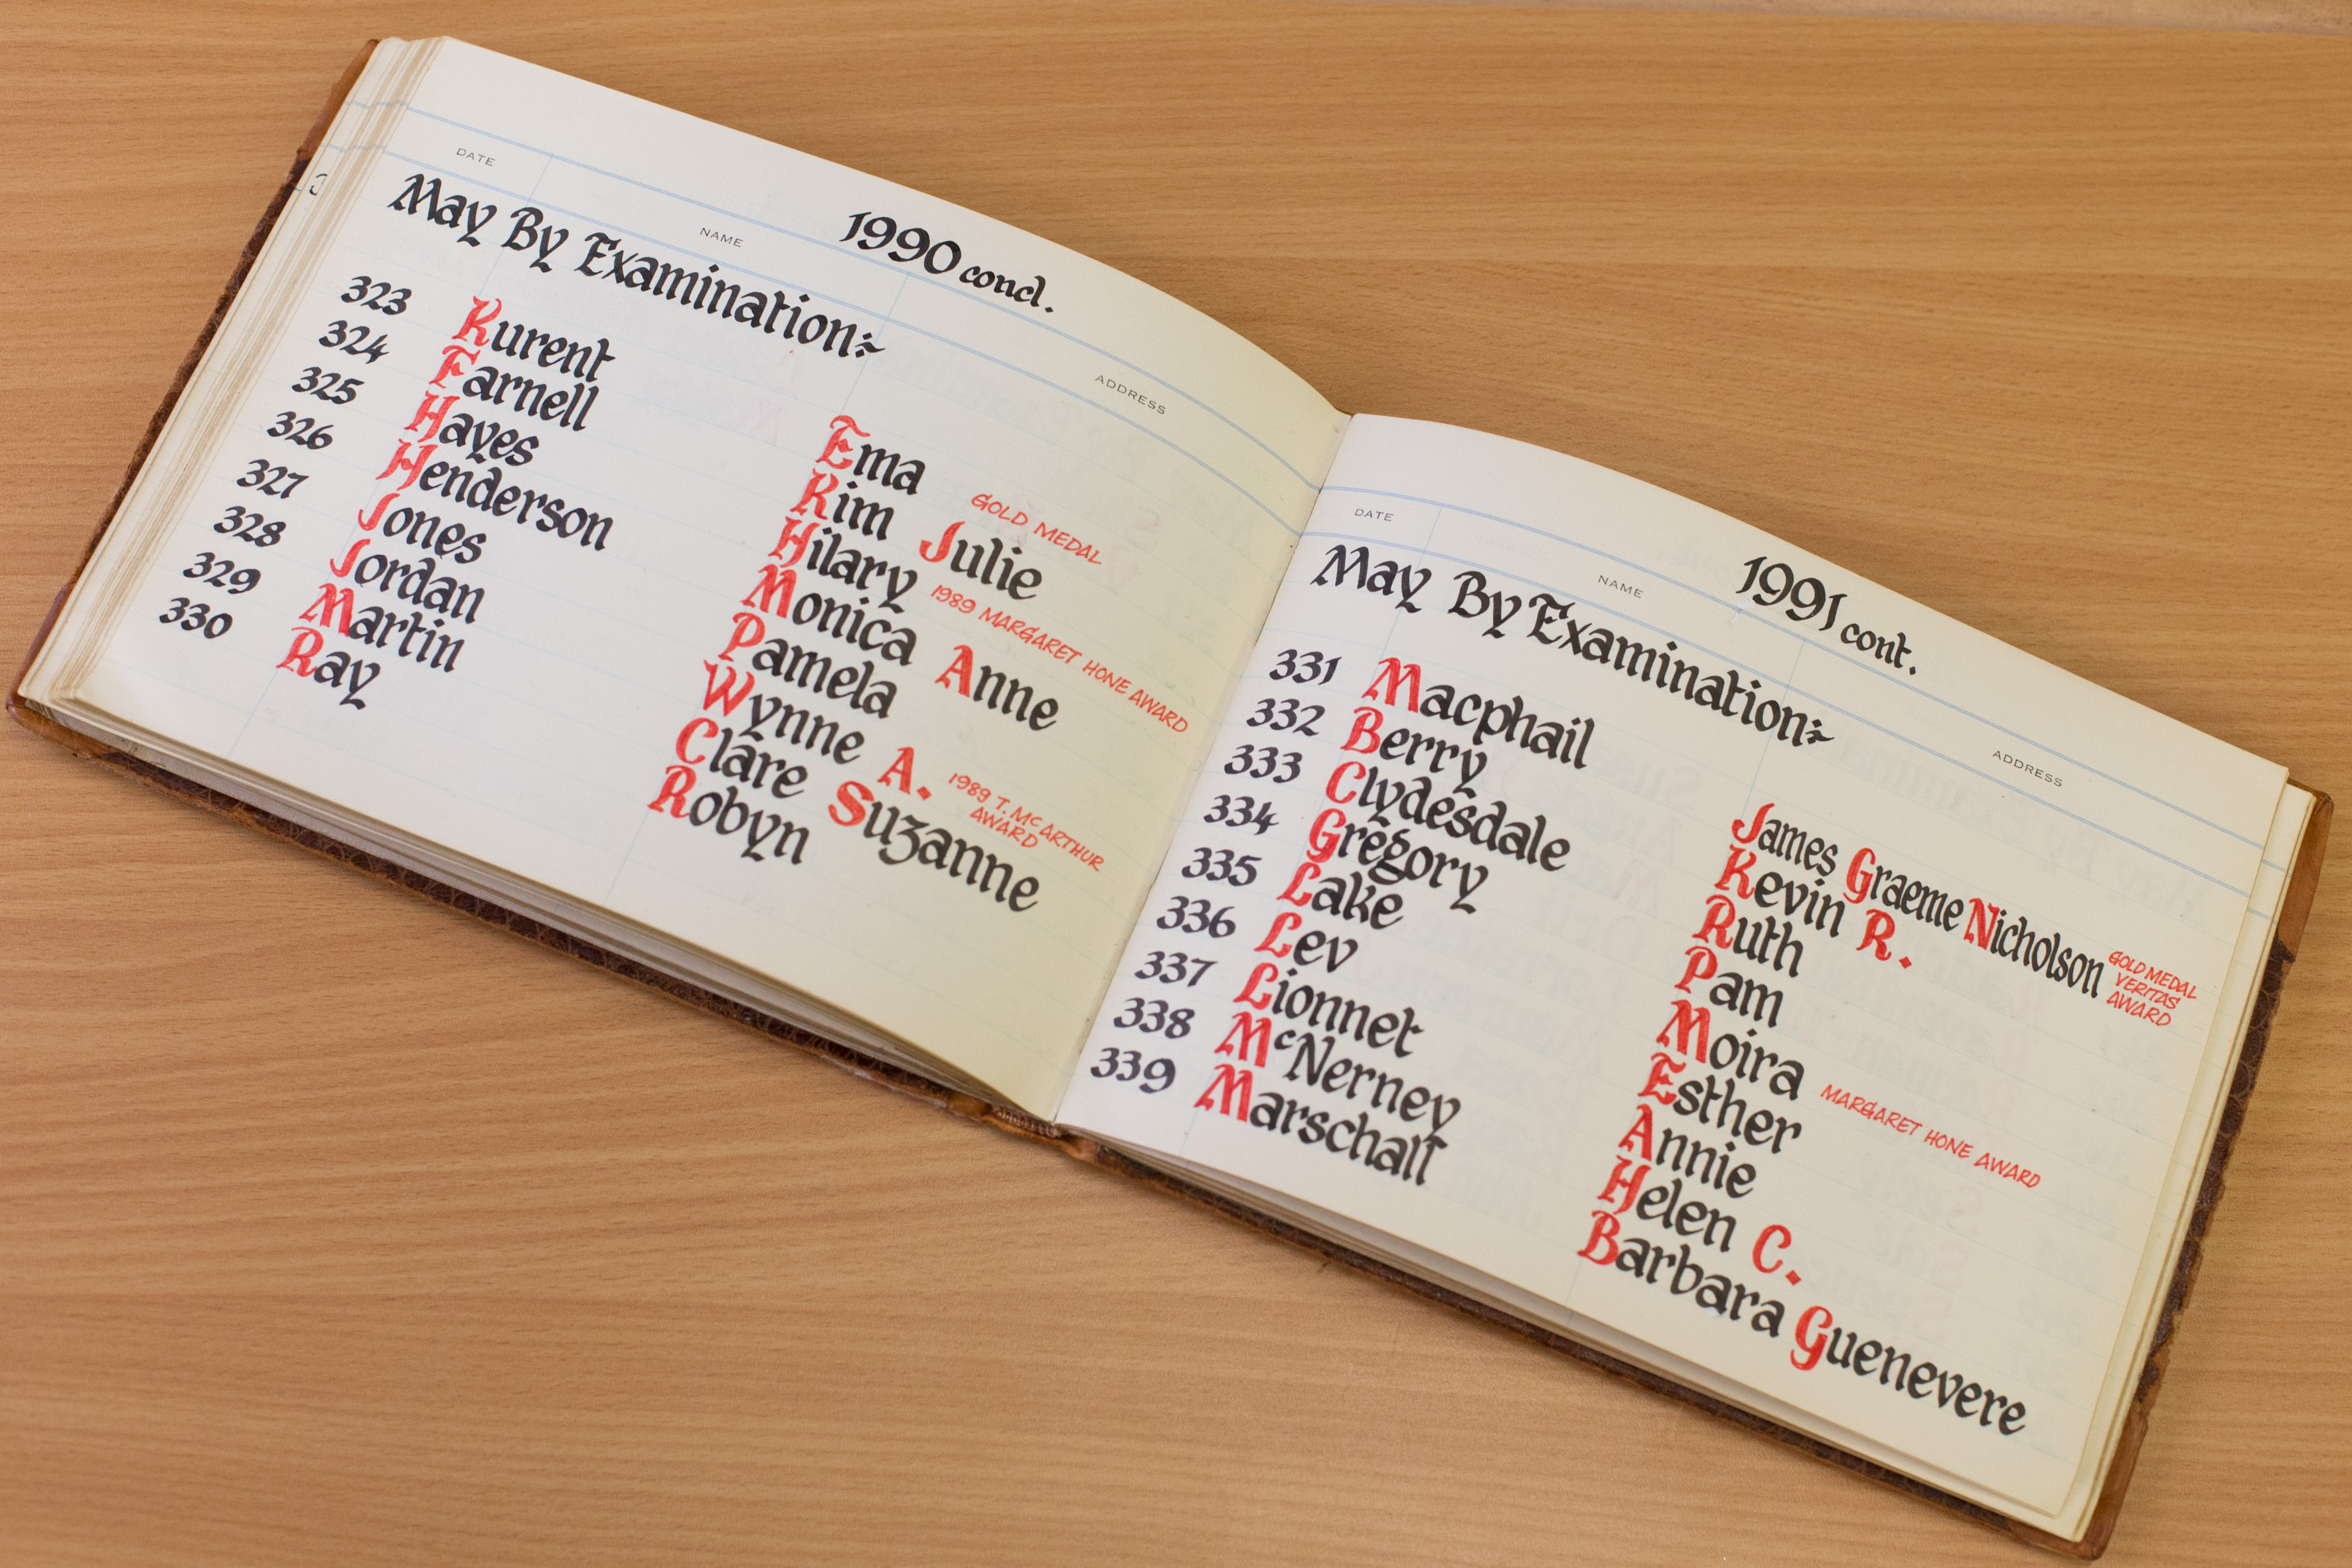 DATE NAME ADDRESS
1990 concl.
May By Examination:~
323 Kurent Ema GOLD MEDAL
324 Farnell Kim Julie
325 Hayes Hilary 1989 MARGARET HONE AWARD
326 Henderson Monica Anne
327 Jones Pamela
328 Jordan Wynne A. 1989 T. MCARTHUR
AWARD
329 Martin Clare Suzanne
330 Ray Robyn
DATE NAME ADDRESS
1991 cont.
May By Examination:~
331 Macphail James Graeme Nicholson GOLD MEDAL
VERITAS
AWARD
332 Berry Kevin R.
333 Clydesdale Ruth
334 Gregory Pam
335 Lake Moira MARGARET HONE AWARD
336 Lev Esther
337 Lionnet Annie
338 McNerney Helen C.
339 Marschalt Barbara Guenevere